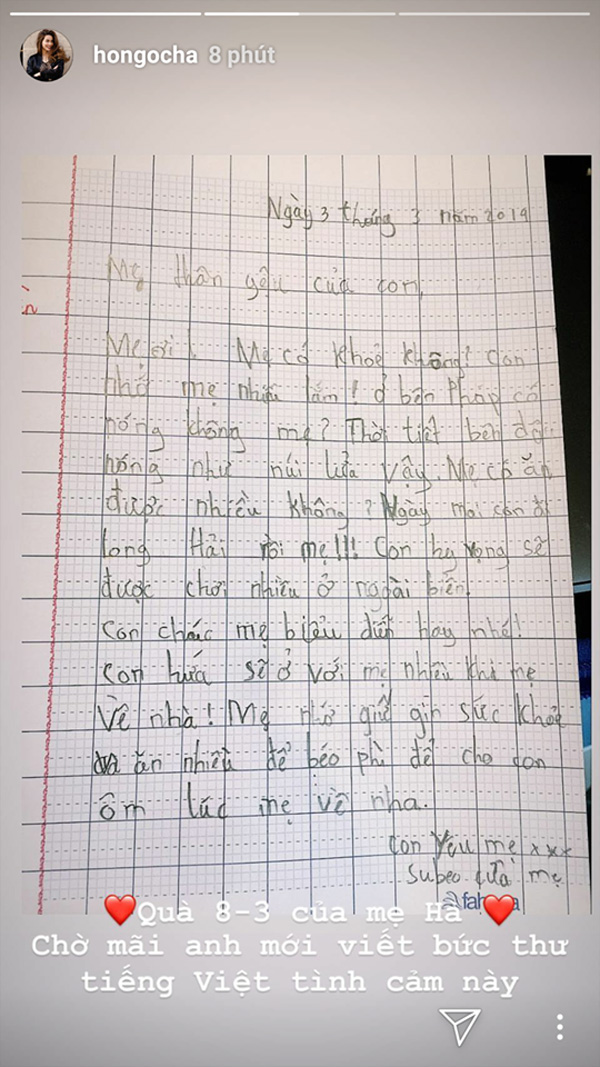 hongocha 8 phút
Ngày 3 tháng 3 năm 2019
Mẹ thân yêu của con,
Mẹ ơi! Mẹ có khoẻ không? con
nhớ mẹ nhiều lắm! ở bên Pháp có
nóng không mẹ? Thời tiết bên đây
nóng như núi lửa vậy. Mẹ có ăn
được nhiều không? Ngày mai con đi
long Hải rồi mẹ!!! Con hy vọng sẽ
được chơi nhiều ở ngoài biển.
Con chác mẹ biểu diễn hay nhé!
Con hứá sẽ ở với mẹ nhiều khi mẹ
Về nhà! Mẹ nhớ giữ gìn sức khoẻ
và ăn nhiều để béo phì để cho con
ôm lúc mẹ về nha.
Con Yêu mẹ xxx
Subeo của mẹ
Quà 8-3 của mẹ Hà
Chờ mãi anh mới viết bức thư
tiếng Việt tình cảm này